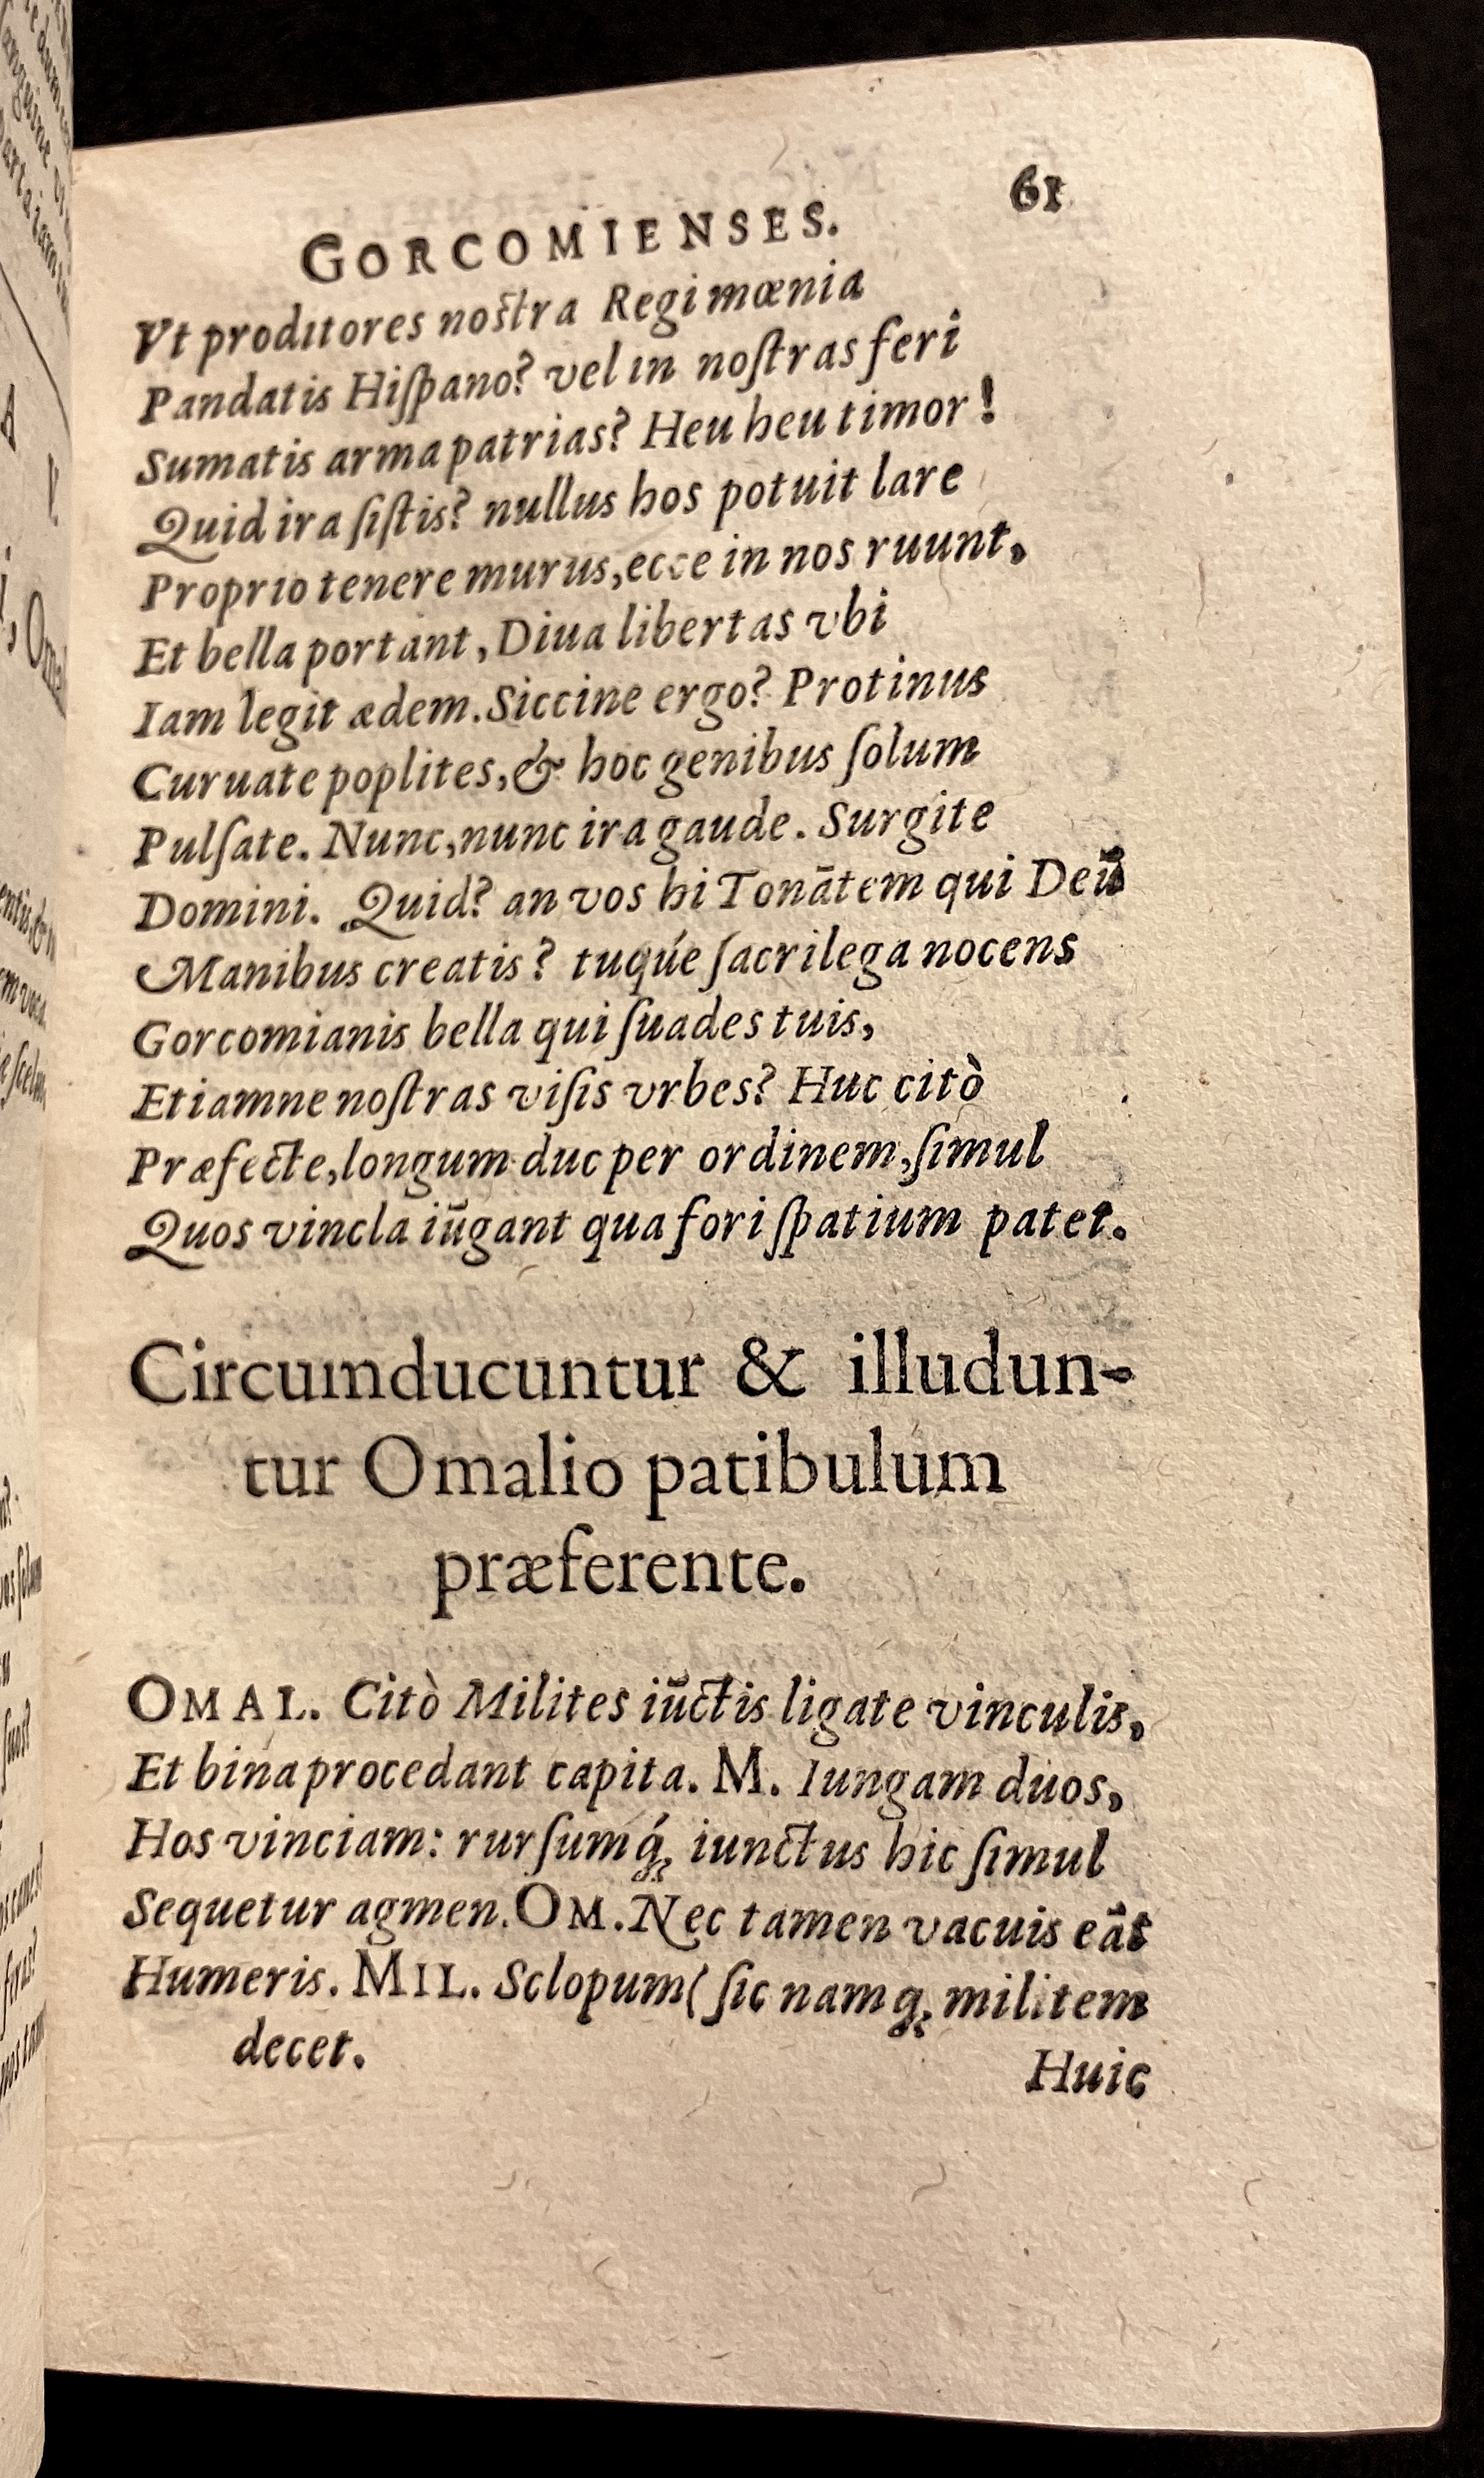 GORCOMIENSES. 61
Vt proditores nostra Regi mœnia
Pandatis Hiſpano? vel in noſtras feri
Sumatis arma patrias? Heu heu timor!
Quid ira ſiſtis? nullus hos potuit lare
Proprio tenere murus, ecce in nos ruunt,
Et bella portant, Diua libertas vbi
Iam legit ædem. Siccine ergo? Protinus
Curuate poplites, & hoc genibus ſolum
Pulſate. Nunc, nunc ira gaude. Surgite
Domini. Quid? an vos hi Tonātem qui Deū
Manibus creatis? tuqúe ſacrilega nocens
Gorcomianis bella qui ſuades tuis,
Etiamne noſtras viſis vrbes? Huc citò
Præfecte, longum duc per ordinem, ſimul
Quos vincla iūgant qua fori ſpatium patet.
Circumducuntur & illudun-
tur Omalio patibulum
præferente.
OMAL. Citò Milites iūctis ligate vinculis,
Et bina procedant capita. M. Iungam duos,
Hos vinciam: rurſumq́; iunctus hic ſimul
Sequetur agmen. OM. Nec tamen vacuis eāt
Humeris. MIL. Sclopum (ſic namq; militem
decet.
Huic